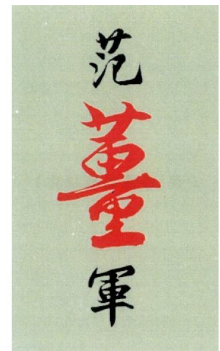 范
董
軍